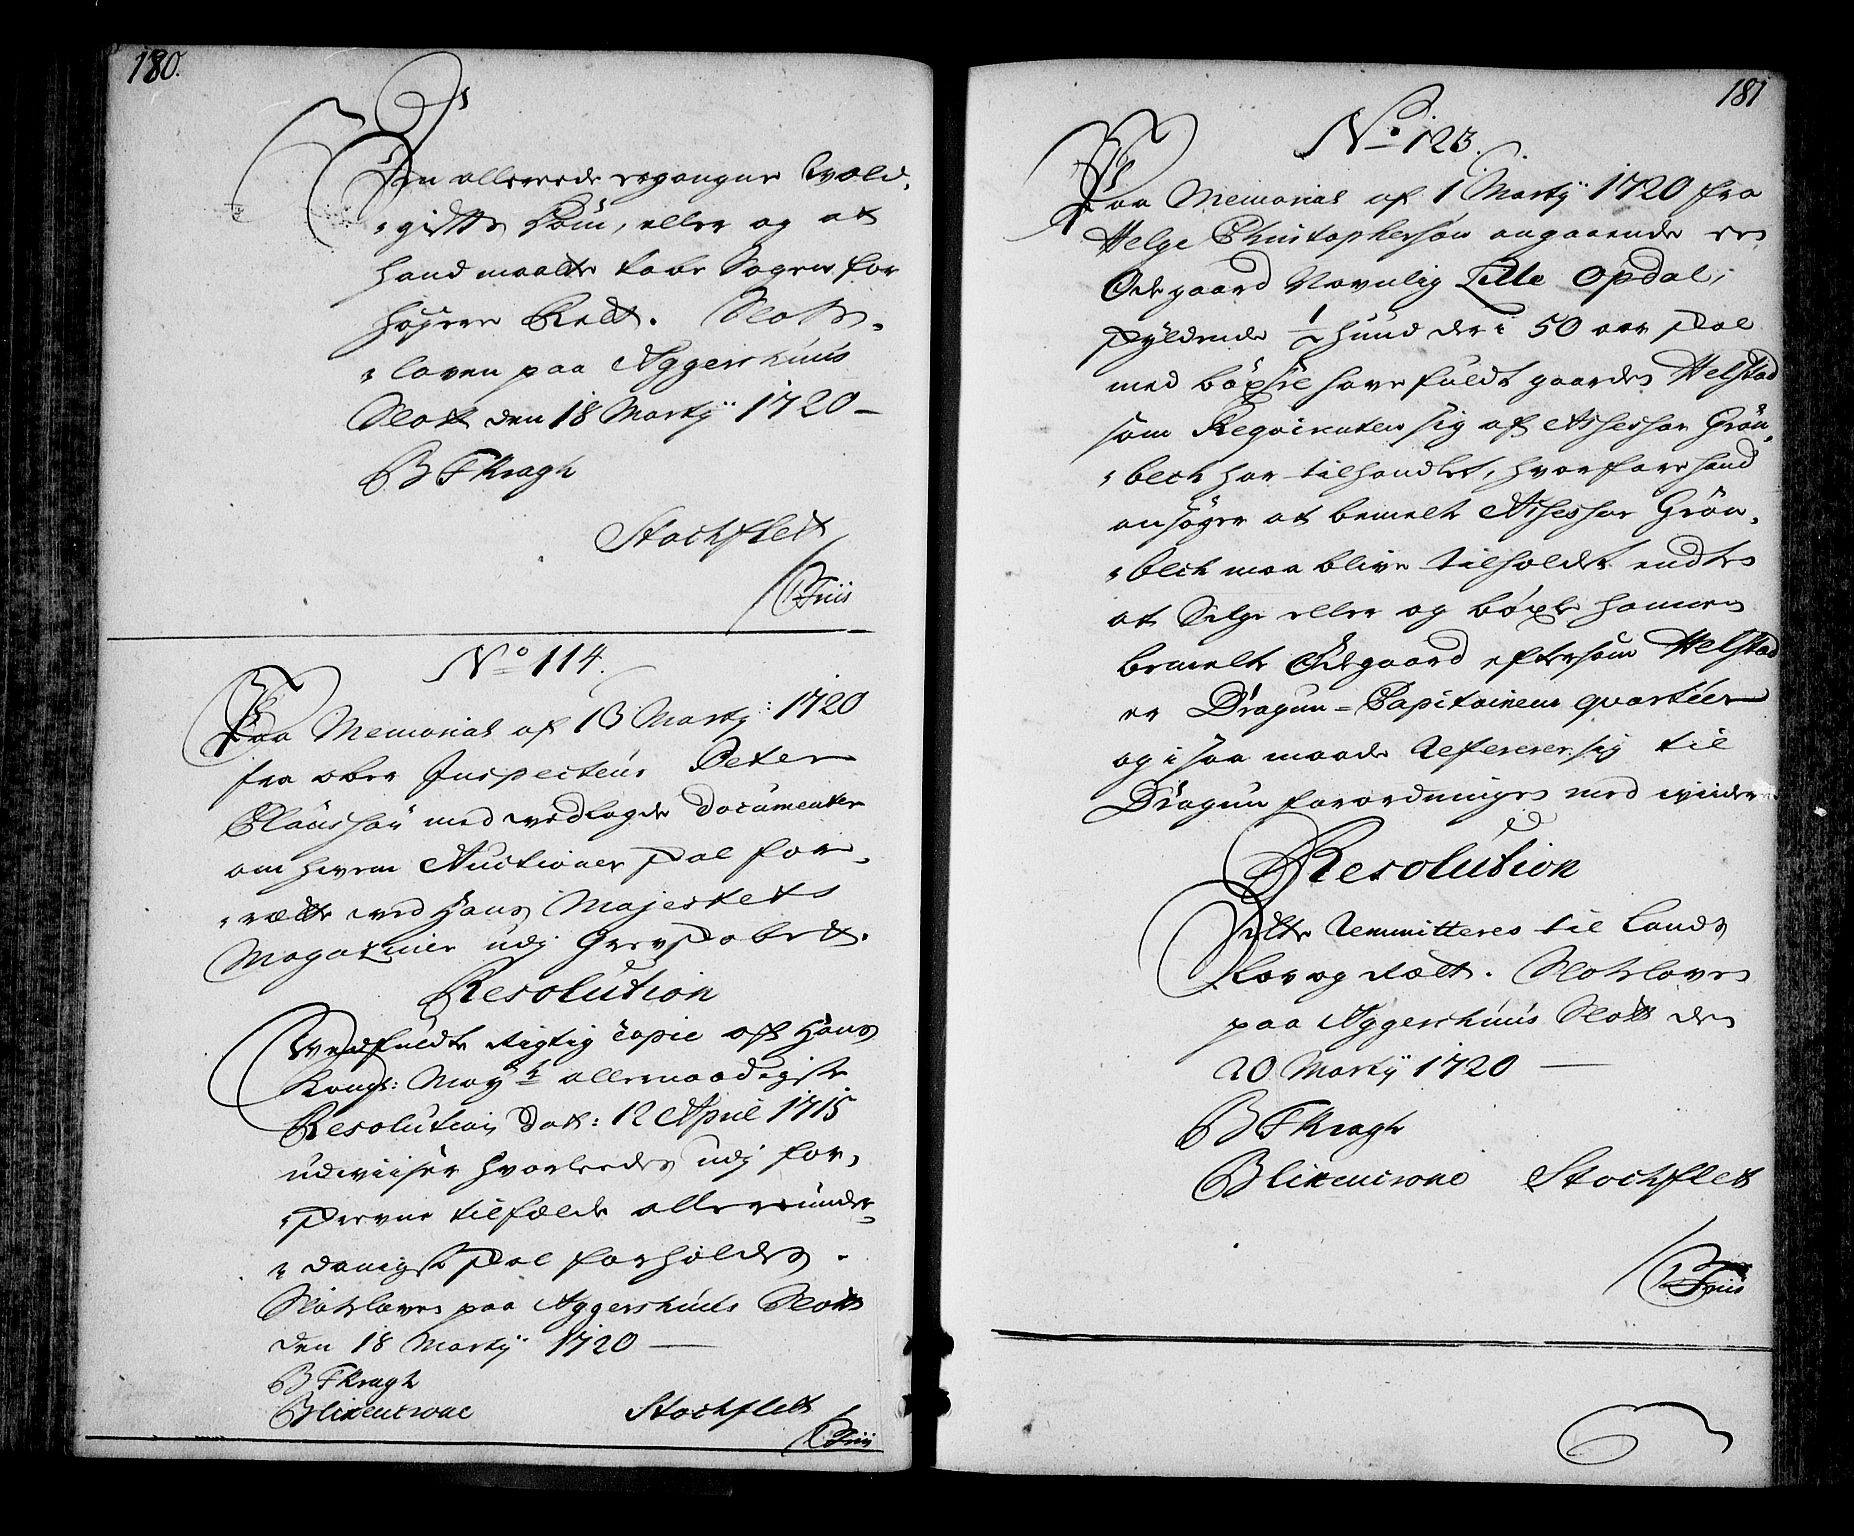 180.
Den allereede ergangne Vold-
-giftts Dom, eller og at
hand maatte tabe Sagen for
høyere Rett. Slotz-
-loven paa Aggershuus
Slott den 18 Martij 1720 —
B F Kragh
Stochflett
Friis
No 114.
Paa Memorial af 13 Martij: 1720
fra ober Inspecteur Peter
Claussøn med vedlagde documenter
om hvem Auctioner skal for-
-rætte ved Hans Majestets
Magaziner udj Grevskabet.
Resolution
Vedfuldte rigtig copie aff Hans
Kongl: Mayts allernaadigste
Resolution Dat: 12 April 1715
udviiser hvorleedes udj for-
-skrevne tilfælde allerunder-
-danigst skal forholdes.
Slotzloven paa Aggershuus Slott
den 18 Martij 1720 —
B F Kragh
Blixencrone Stochflett
Friis
181
No 123.
Paa Memorial af 1 Martij 1720 fra
Helge Christophersøn angaaende en
Ødegaard Navnlig Lille Opdal,
skyldende 1/2 hund der i 50 aar skal
med bøxle have fuldt gaarden Helstad
som Reqvirenten sig af Assessor Grøn-
-bech har tilhandlet, hvorfore hand
ansøger at bemelte Assessor Grøn-
-bech maa blive tilholdet endten
at Selge eller og bøxle hannem
bemelte Ødegaard eftersom Helstad
er Dragun-Capitainens quarteer
og i saa maade Refererer sig til
Dragun forordningen med viidere
Resolution
Dette Remmitteres til Lands
Lov og Rætt. Slotzloven
paa Aggershuus Slott den
20 Martij 1720 —
B F Kragh
Blixencrone Stochflett
Friis